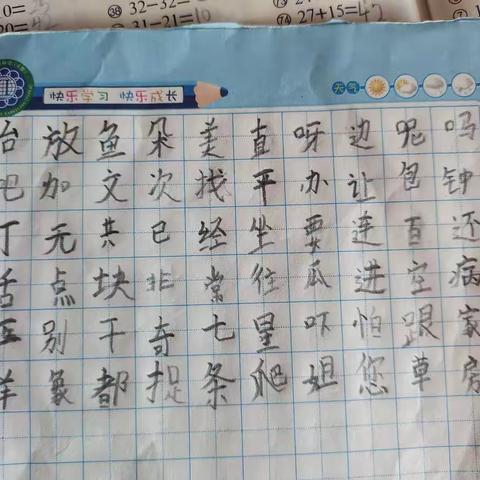 ㊳ 32-32=
31-21=10
27+15=42
快乐学习 快乐成长
天气
放鱼朵美直呀边呢吗
吧加文次找平办让包钟
丁无共已经坐要连百还
舌点块非常往瓜进空病
别干奇七星吓怕跟家
羊象都捉条爬姐您草房